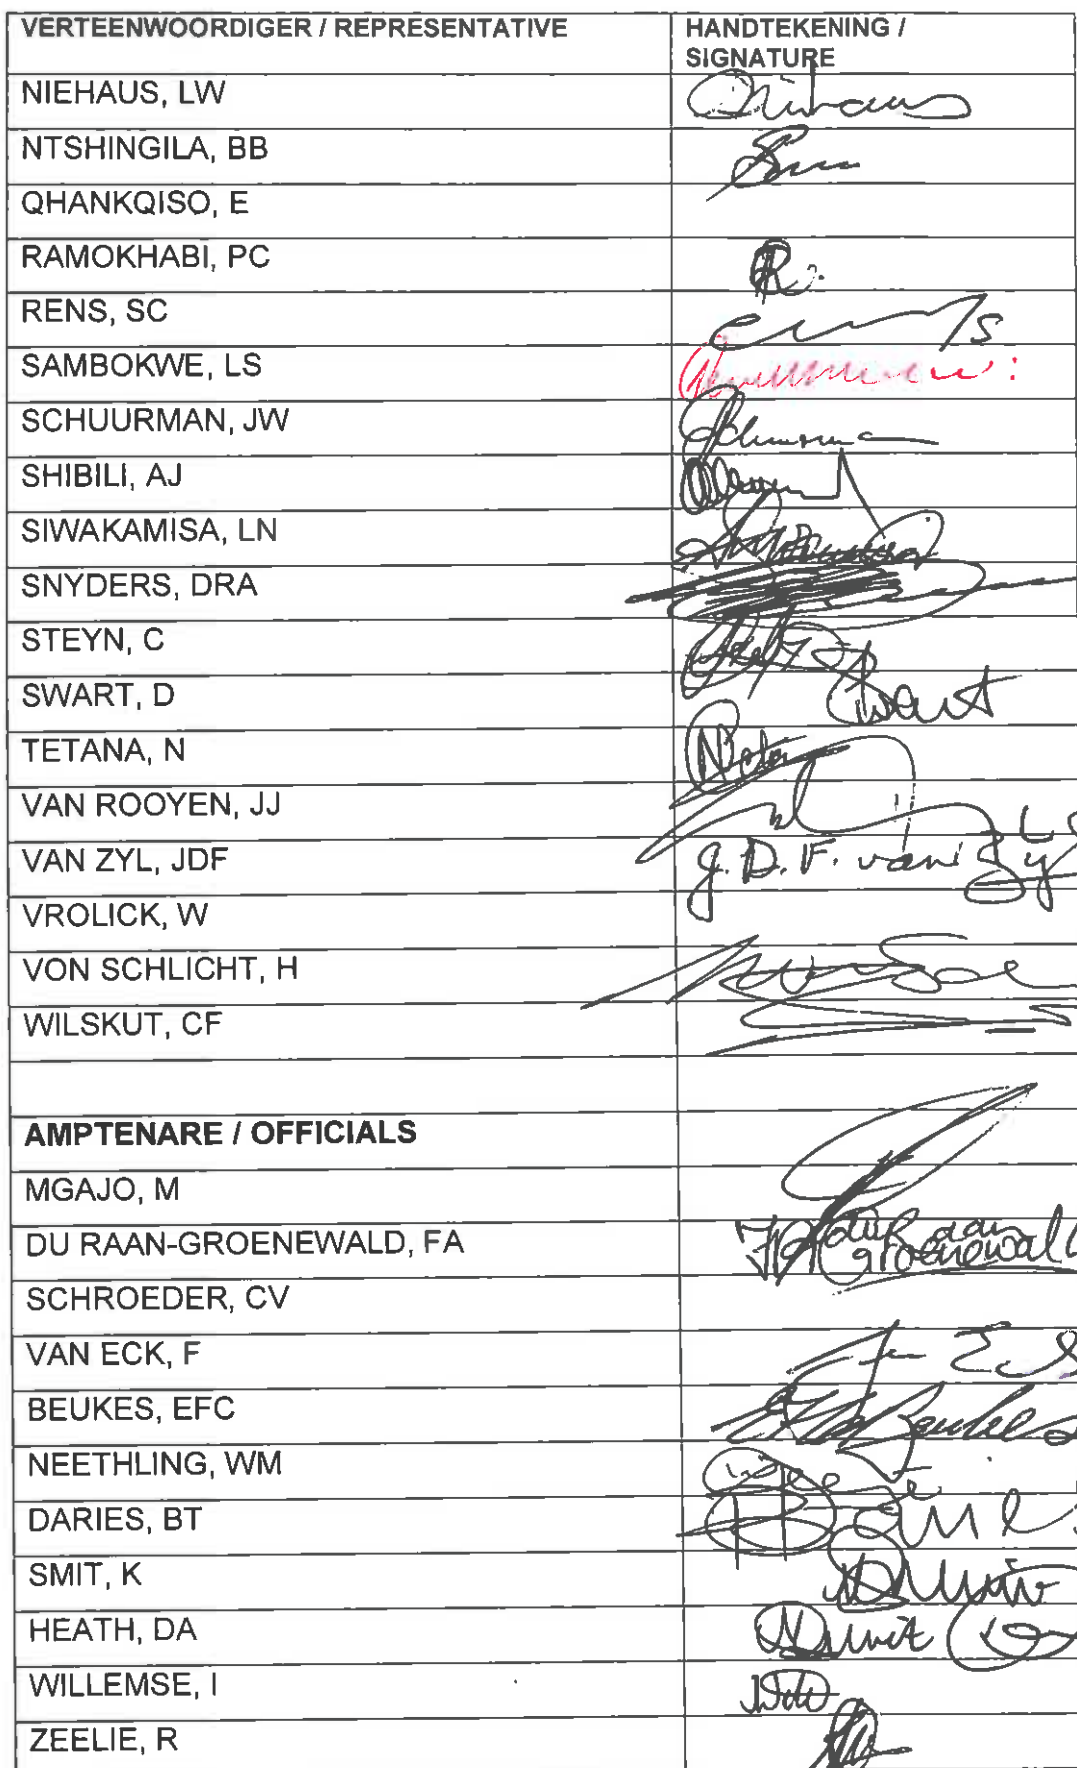 VERTEENWOORDIGER / REPRESENTATIVE HANDTEKENING /
SIGNATURE
NIEHAUS, LW
NTSHINGILA, BB
QHANKQISO, E
RAMOKHABI, PC
RENS, SC
SAMBOKWE, LS
SCHUURMAN, JW
SHIBILI, AJ
SIWAKAMISA, LN
SNYDERS, DRA
STEYN, C
SWART, D Swart
TETANA, N
VAN ROOYEN, JJ
VAN ZYL, JDF J.D.F. van Zyl
VROLICK, W
VON SCHLICHT, H
WILSKUT, CF
AMPTENARE / OFFICIALS
MGAJO, M
DU RAAN-GROENEWALD, FA FA du Raan
Groenewald
SCHROEDER, CV
VAN ECK, F
BEUKES, EFC Beukes
NEETHLING, WM
DARIES, BT
SMIT, K
HEATH, DA
WILLEMSE, I
ZEELIE, R